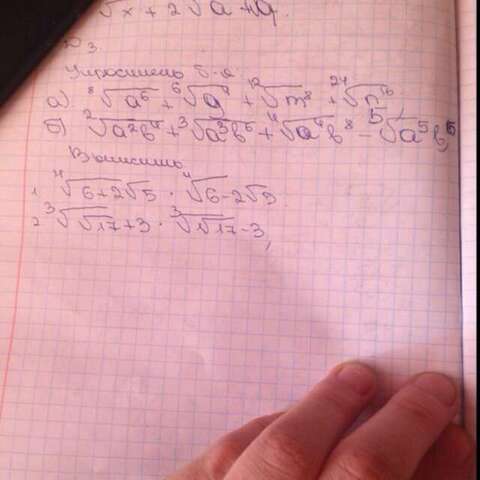 √x + 2√a + a.
№3
Упростить б-я
а) ⁸√a⁶ + ⁶√a⁴ + ¹²√m⁸ + ²⁴√n¹⁶,
б) ²√a²b⁴ + ³√a³b⁶ + ⁴√a⁴b⁸ - ⁵√a⁵b⁵,
Вычислить
1 ⁴√6+2√5 · ⁴√6-2√5
2 ³√√17+3 · ³√√17-3,